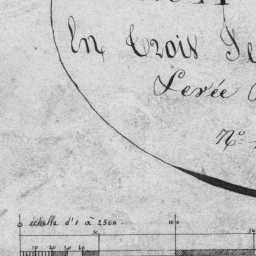 En Trois Fe
Levée
N°
échelle d'1 à 2500